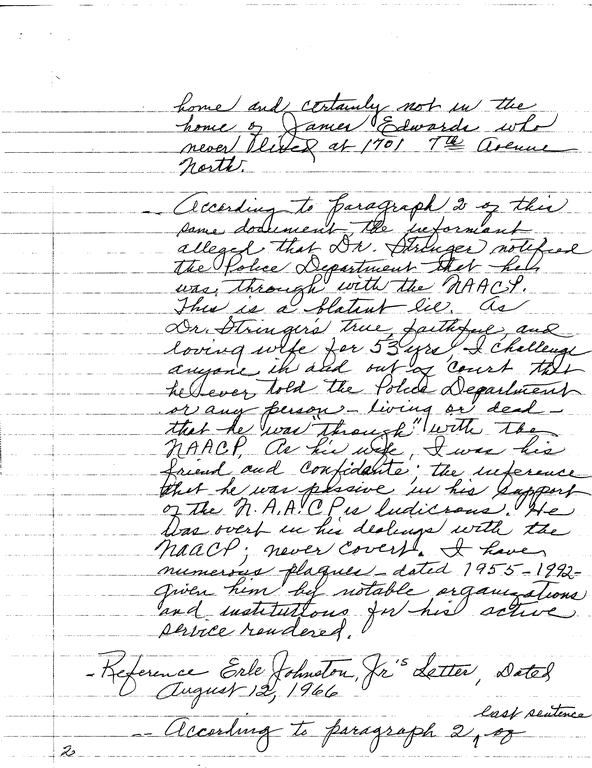 home and certainly not in the
home of James Edwards who
never lived at 1701 7th Avenue
North.
-- According to paragraph 2 of this
same document, the informant
alleged that Dr. Stringer notified
the Police Department that he
was through with the NAACP.
This is a blatent lie. As
Dr. Stringer's true, faithful, and
loving wife for 53 yrs, I challenge
anyone in and out of court that
he ever told the Police Department
or any person - living or dead -
that he was "through" with the
NAACP. As his wife, I was his
friend and confidante; the inference
that he was passive in his support
of the N.A.A.C.P is ludicrous. He
was overt in his dealings with the
NAACP; never covert. I have
numerous plaques - dated 1955-1992-
given him by notable organizations
and institutions for his active
service rendered.
- Reference Erle Johnston, Jr's Letter, Dated
August 12, 1966
last sentence
-- According to paragraph 2, of